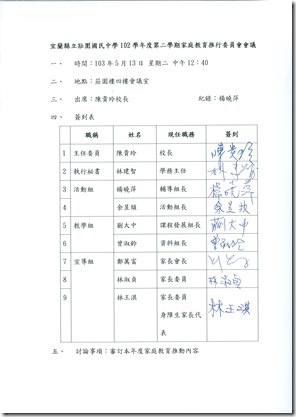 宜蘭縣立壯圍國民中學 102 學年度第二學期家庭教育推行委員會會議
一、 時間：103 年 5 月 13 日 星期二 中午 12：40
二、 地點：莊園樓四樓會議室
三、 出席：陳貴玲校長 紀錄：楊曉萍
四、 簽到表
職稱 姓名 現任職務 簽到
1 主任委員 陳貴玲 校長 陳貴玲
2 執行秘書 林建智 學務主任
3 活動組 楊曉萍 輔導組長 楊曉萍
4 余昱嬑 活動組長
5 教學組 謝大中 課程發展組長 謝大中
6 曾淑齡 資料組長
7 宣導組 鄭萬富 家長會長
8 林淑貞 家長委員 林淑貞
9 林玉淇 家長委員 林玉淇
身障生家長代
表
五、 討論事項：審訂本年度家庭教育推動內容